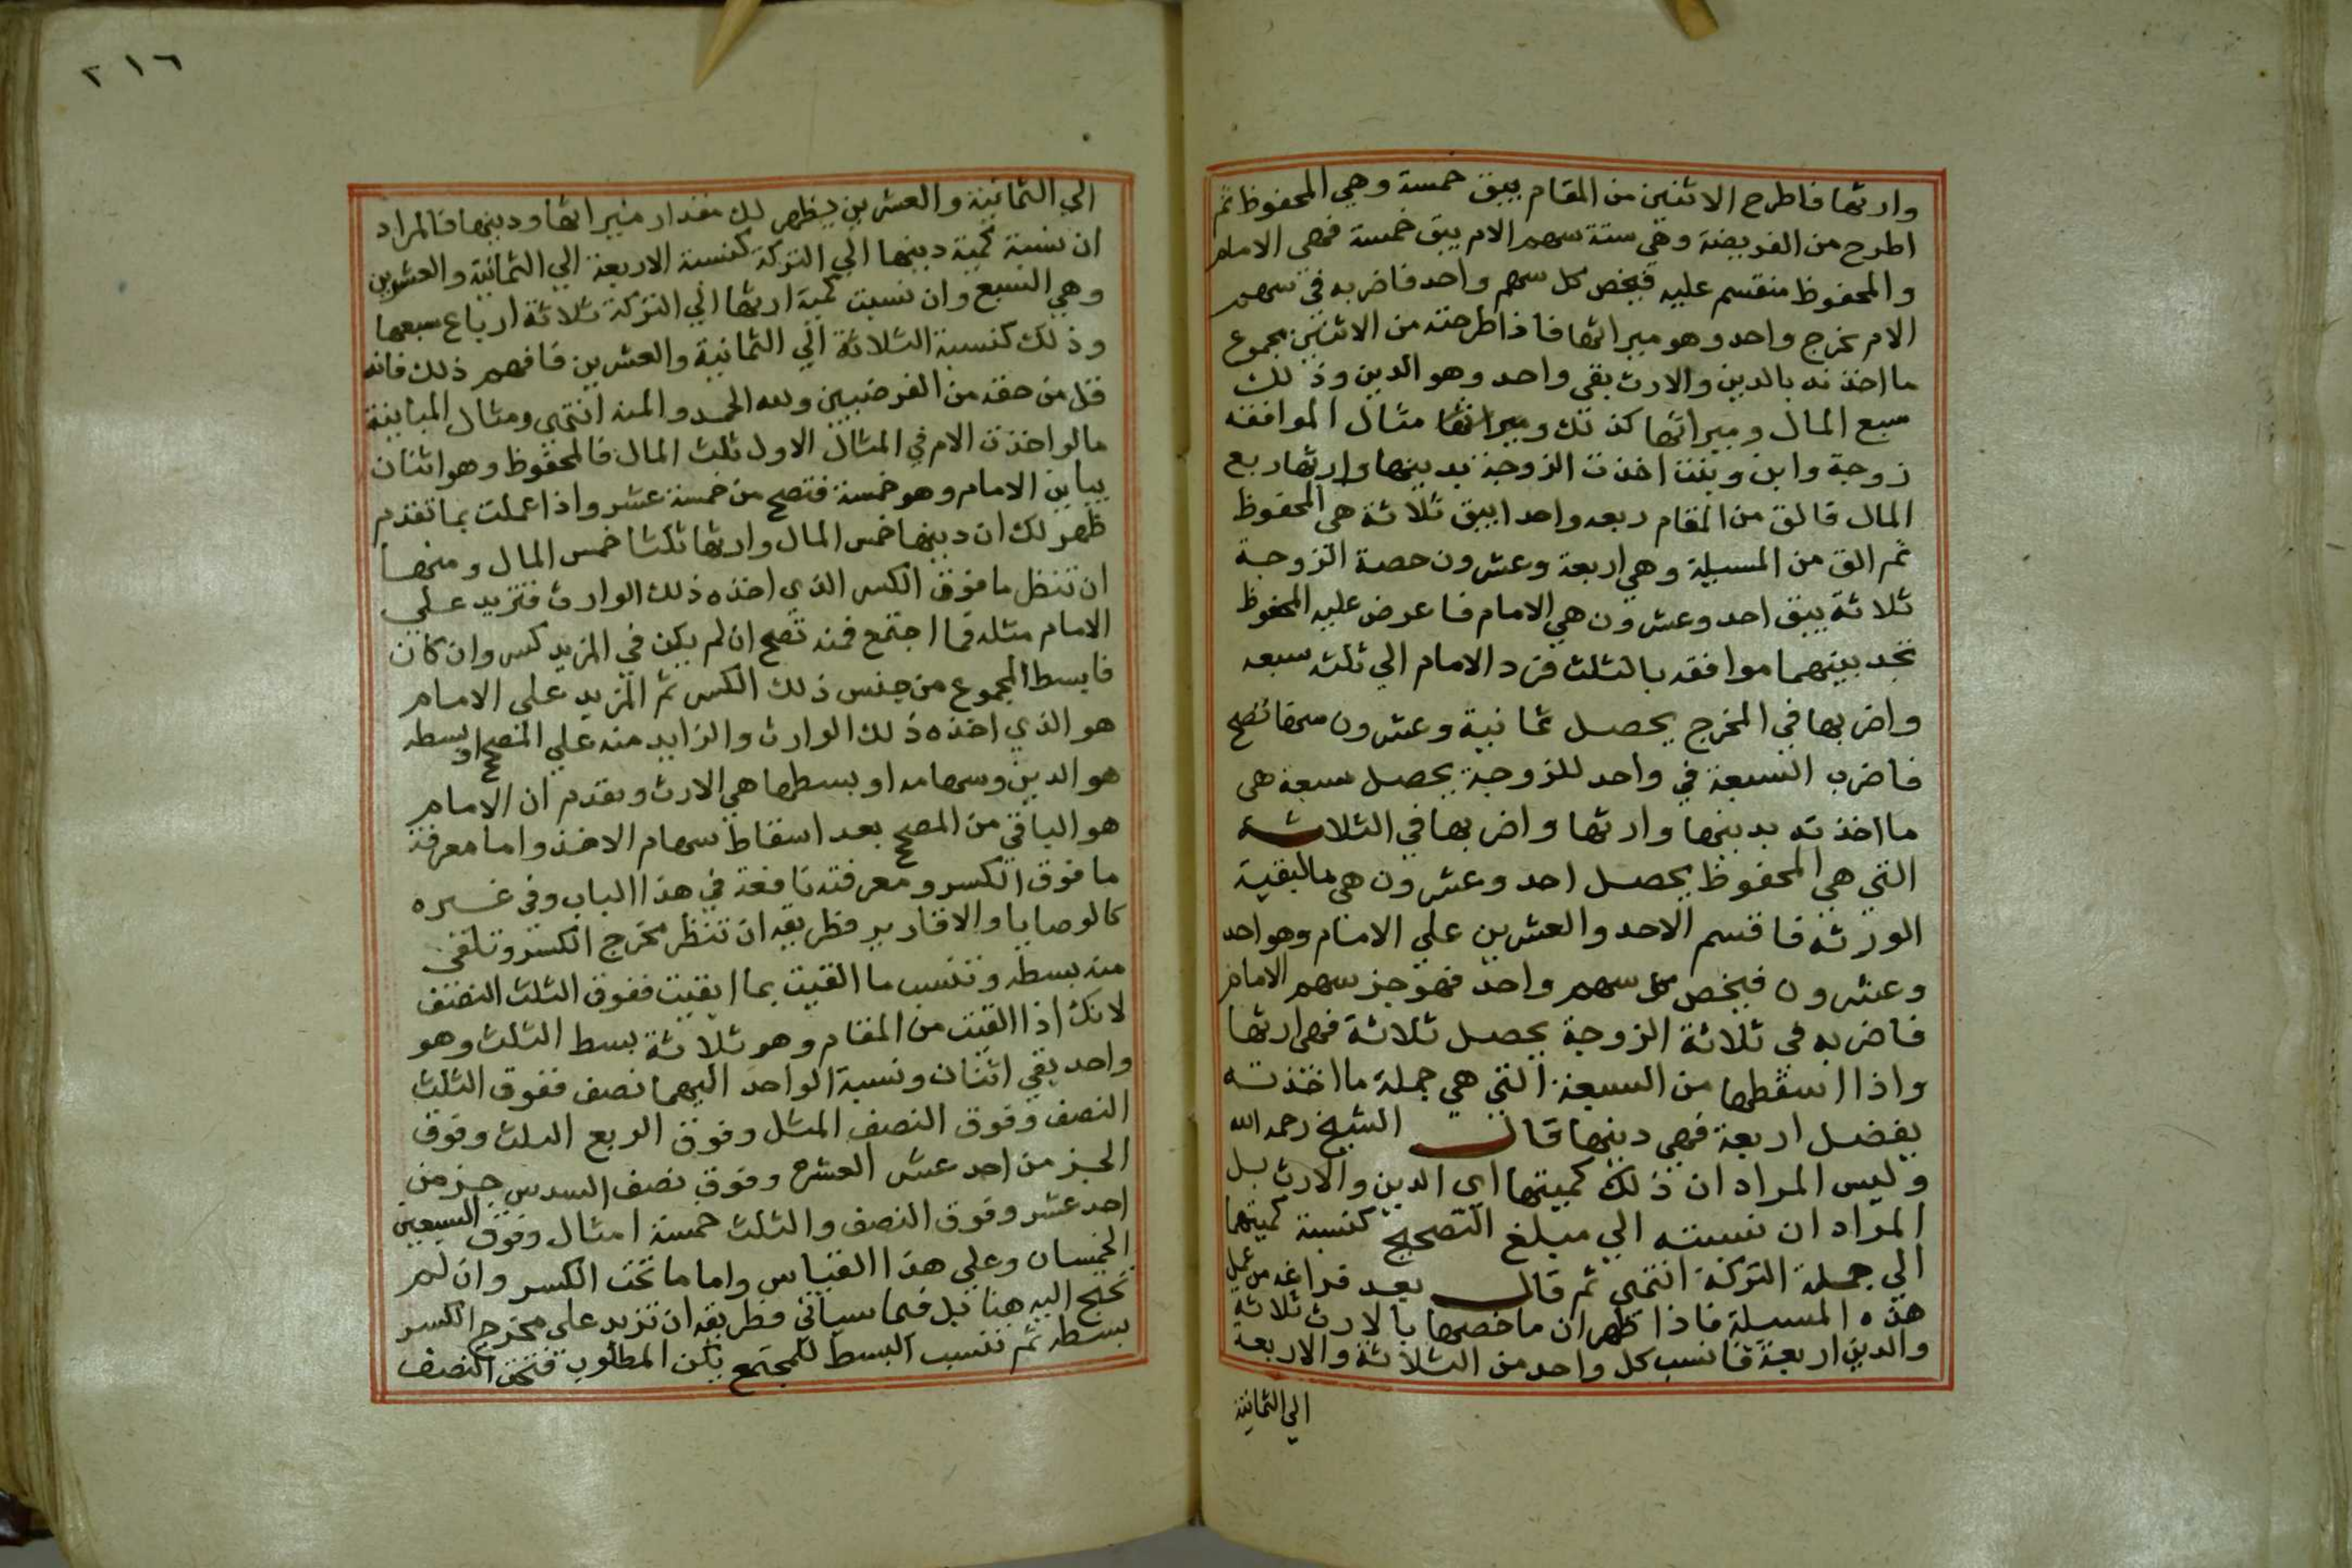 وارثها فاطرح الاثنين من المقام يبق خمسة وهي المحفوظ ثم
اطرح من الفريضة وهي ستة سهم الام يبق خمسة فهي الامام
والمحفوظ منقسم عليه فيخص كل سهم واحد فاضربه في سهم
الام يخرج واحد وهو ميراثها فاذا طرحته من الاثنين مجموع
ما اخذته بالدين والارث بقي واحد وهو الدين وذلك
سبع المال وميراثها كذلك وميراثها مثال الموافقة
زوجة وابن وبنت اخذت الزوجة بدينها وارثها ربع
المال فالق من المقام ربعه واحدا يبق ثلاثة هي المحفوظ
ثم الق من المسيلة وهي اربعة وعشرون حصة الزوجة
ثلاثة يبق احد وعشرون هي الامام فاعرض عليه المحفوظ
تجد بينهما موافقه بالثلث فرد الامام الي ثلثه سبعه
واضربها في المخرج يحصل ثمانية وعشرون منها تصح
فاضرب السبعة في واحد للزوجة يحصل سبعة هي
ما اخذته بدينها وارثها واضربها في الثلاثة
التي هي المحفوظ يحصل احد وعشرون هي ما لبقية
الورثه فاقسم الاحد والعشرين علي الامام وهو احد
وعشرون فيخص كل سهم واحد فهو جز سهم الامام
فاضربه في ثلاثة الزوجة يحصل ثلاثة فهي ارثها
واذا اسقطها من السبعة التي هي جملة ما اخذته
يفضل اربعة فهي دينها قال الشيخ رحمه الله
وليس المراد ان ذلك كميتها اي الدين والارث بل
المراد ان نسبته الي مبلغ التصحيح كنسبة كميتها
الي جملة التركة انتهي ثم قال بعد فراغه من عمل
هذه المسيلة فاذا ظهر ان ما خصها بالارث ثلاثة
والدين اربعة فانسب كل واحد من الثلاثة والاربعة
الي الثمانية
٢١٦
الي الثمانية والعشرين يظهر لك مقدار ميراثها ودينها فالمراد
ان نسبة كمية دينها الي التركة كنسبة الاربعة الي الثمانية والعشرين
وهي السبع وان نسبت كمية ارثها الي التركة ثلاثة ارباع سبعها
وذلك كنسبة الثلاثة الي الثمانية والعشرين فافهم ذلك فانه
قل من حققه من الفرضيين ولله الحمد والمنه انتهي ومثال المباينة
مالو اخذت الام في المثال الاول ثلث المال فالمحفوظ وهو اثنان
يباين الامام وهو خمسة فتصح من خمسة عشر واذا عملت بما تقدم
ظهر لك ان دينها خمس المال وارثها ثلثا خمس المال ومنها
ان تنظر ما فوق الكسر الذي اخذه ذلك الوارث فتزيد علي
الامام مثله فما اجتمع فمنه تصح ان لم يكن في المزيد كسر وان كان
فابسط المجموع من جنس ذلك الكسر ثم المزيد علي الامام
هو الذي اخذه ذلك الوارث والزايد منه علي المصحح او بسطه
هو الدين وسهامه او بسطها هي الارث وتقدم ان الامام
هو الباقي من المصحح بعد اسقاط سهام الاخذ واما معرفة
ما فوق الكسر ومعرفته نافعة في هذا الباب وفي غيره
كالوصايا والاقارير فطريقه ان تنظر مخرج الكسر وتلقي
منه بسطه وتنسب ما القيت بما ابقيت ففوق الثلث النصف
لانك اذا القيت من المقام وهو ثلاثة بسط الثلث وهو
واحد بقي اثنان ونسبة الواحد اليهما نصف ففوق الثلث
النصف وفوق النصف المثل وفوق الربع الثلث وفوق
الجز من احد عشر العشر وفوق نصف السدس جز من
احد عشر وفوق النصف والثلث خمسة امثال وفوق السبعين
الخمسان وعلي هذا القياس واما ما تحت الكسر وان لم
نحتج اليه هنا بل فيما سياتي فطريقه ان تزيد علي مخرج الكسر
بسطه ثم تنسب البسط للمجتمع يكن المطلوب فتحت النصف